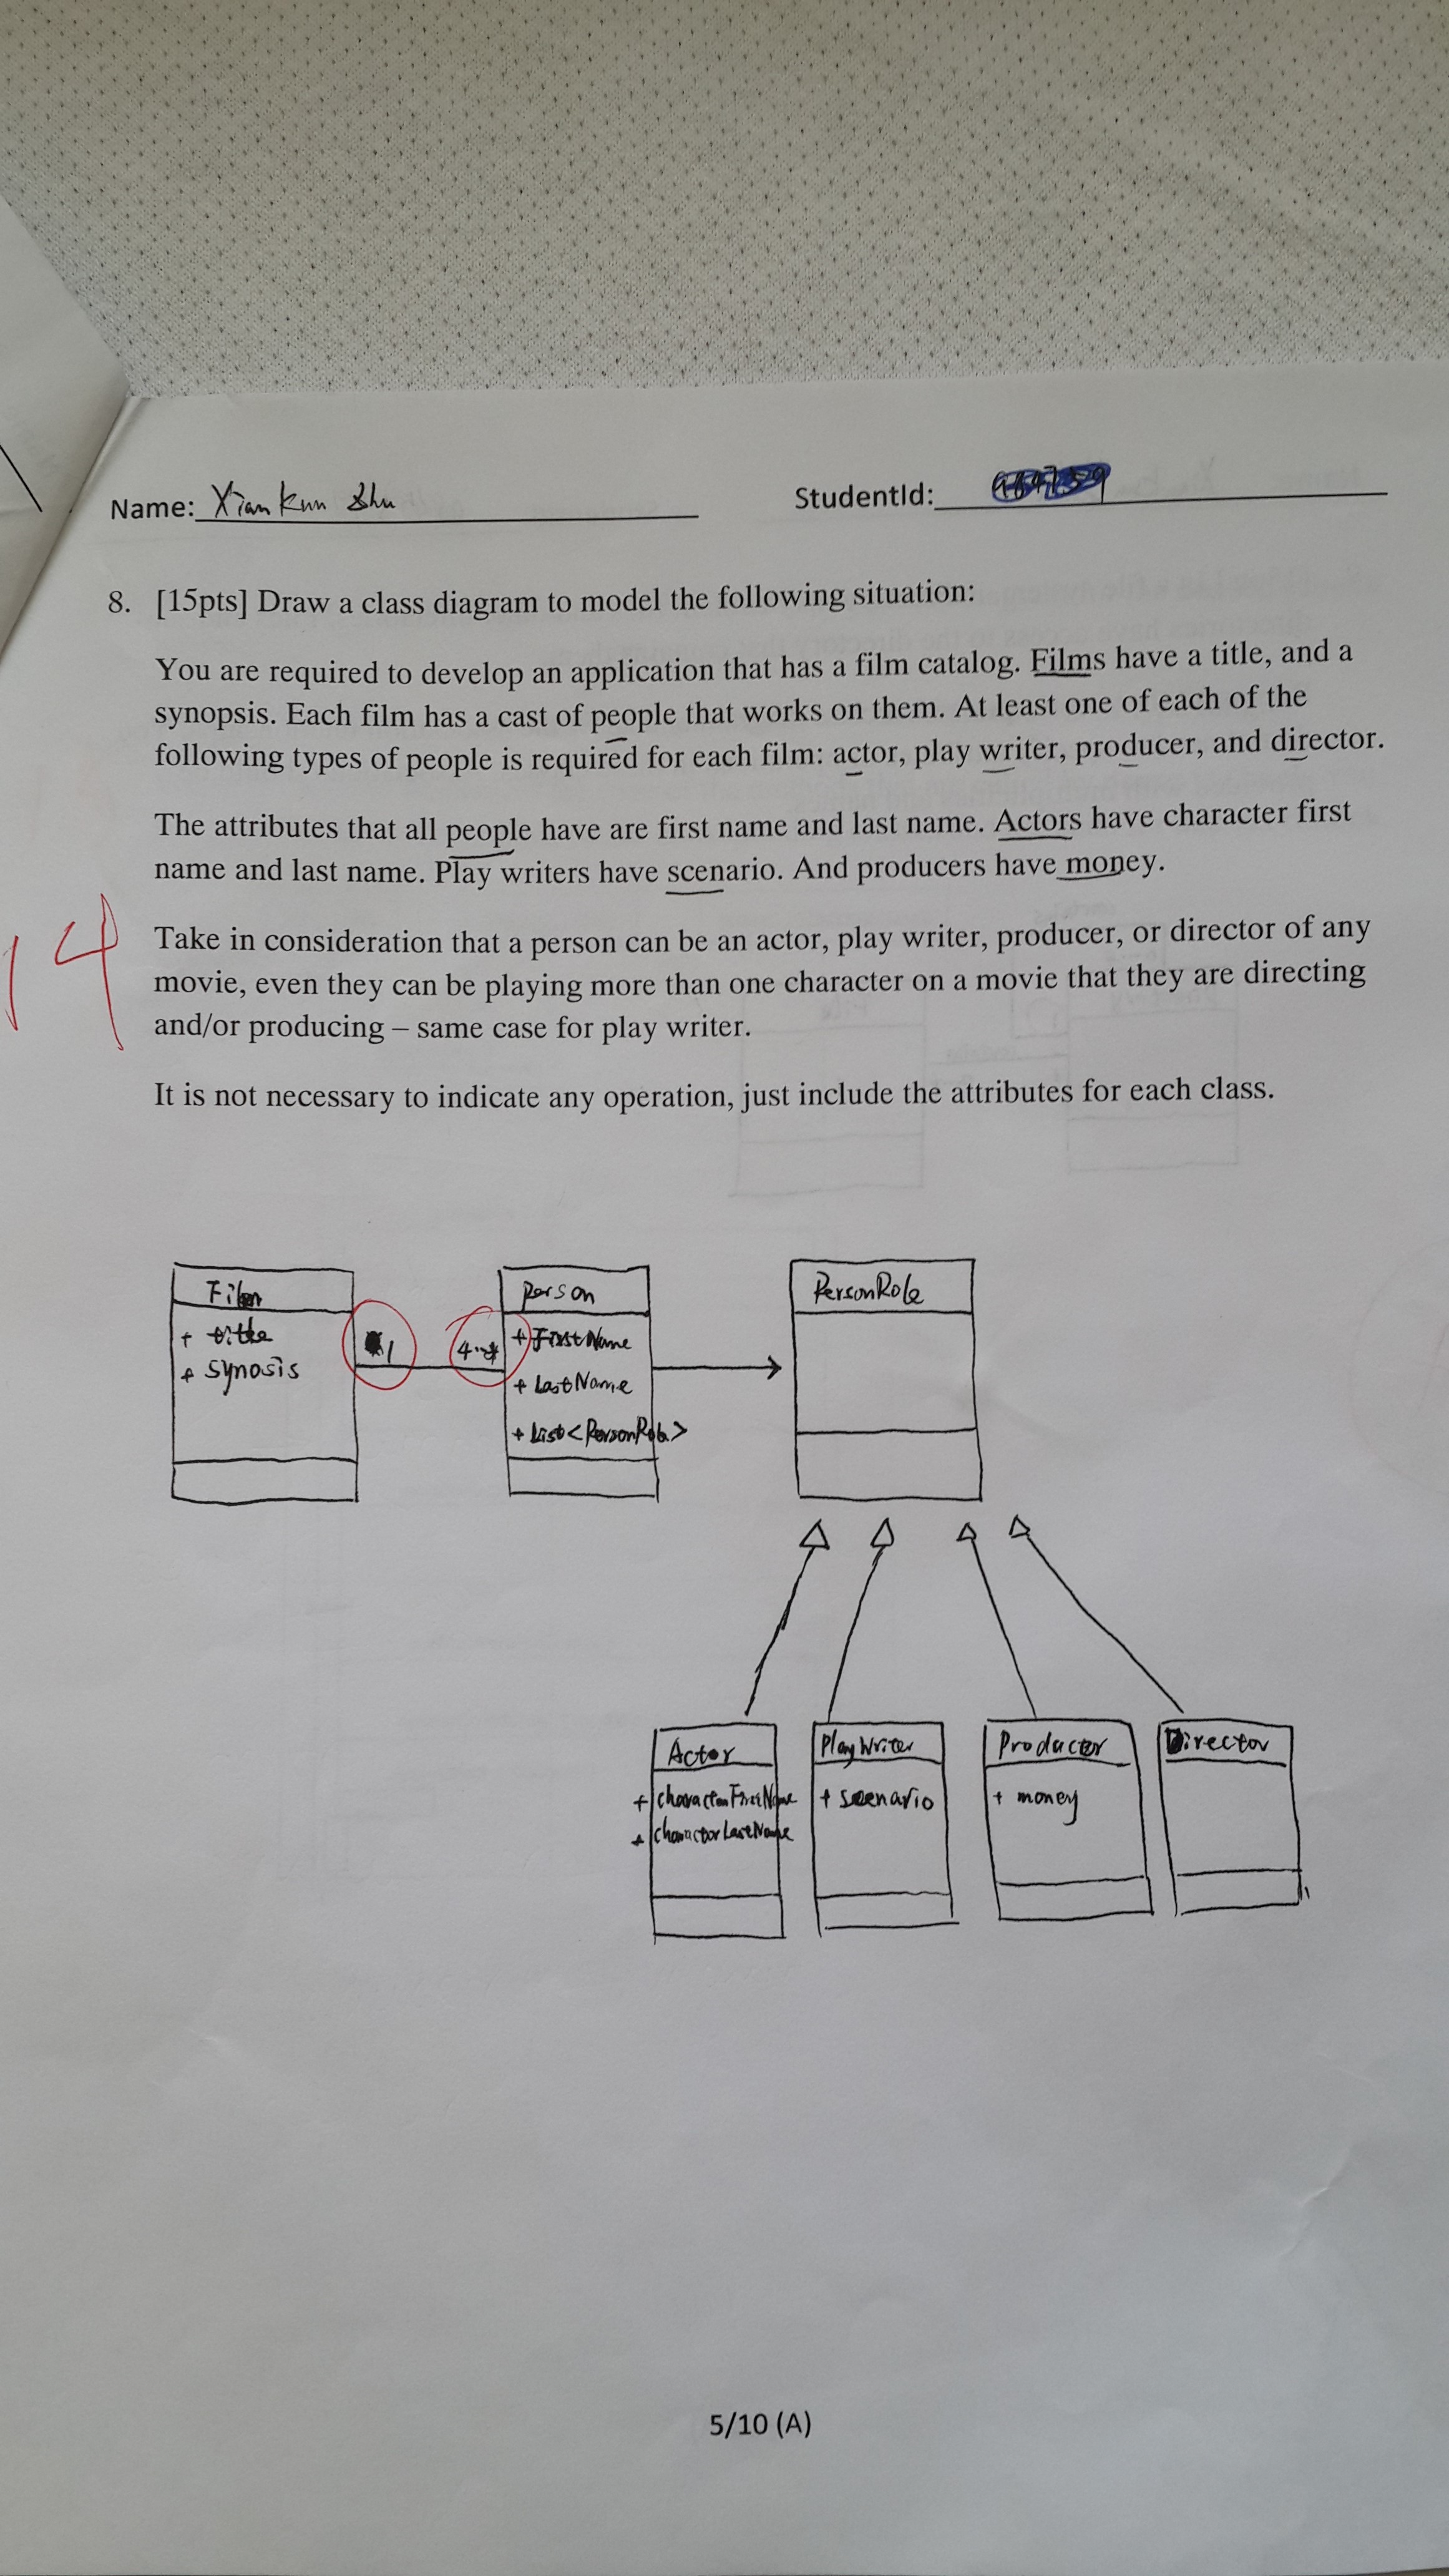 Name: Xiankun Shu StudentId:
8. [15pts] Draw a class diagram to model the following situation:
You are required to develop an application that has a film catalog. Films have a title, and a
synopsis. Each film has a cast of people that works on them. At least one of each of the
following types of people is required for each film: actor, play writer, producer, and director.
The attributes that all people have are first name and last name. Actors have character first
name and last name. Play writers have scenario. And producers have money.
14
Take in consideration that a person can be an actor, play writer, producer, or director of any
movie, even they can be playing more than one character on a movie that they are directing
and/or producing – same case for play writer.
It is not necessary to indicate any operation, just include the attributes for each class.
Film
+ title
+ synosis
1
4..*
Person
+ FirstName
+ LastName
+ List<PersonRole>
PersonRole
Actor
+ characterFirstName
+ characterLastName
PlayWriter
+ scenario
Producer
+ money
Director
5/10 (A)